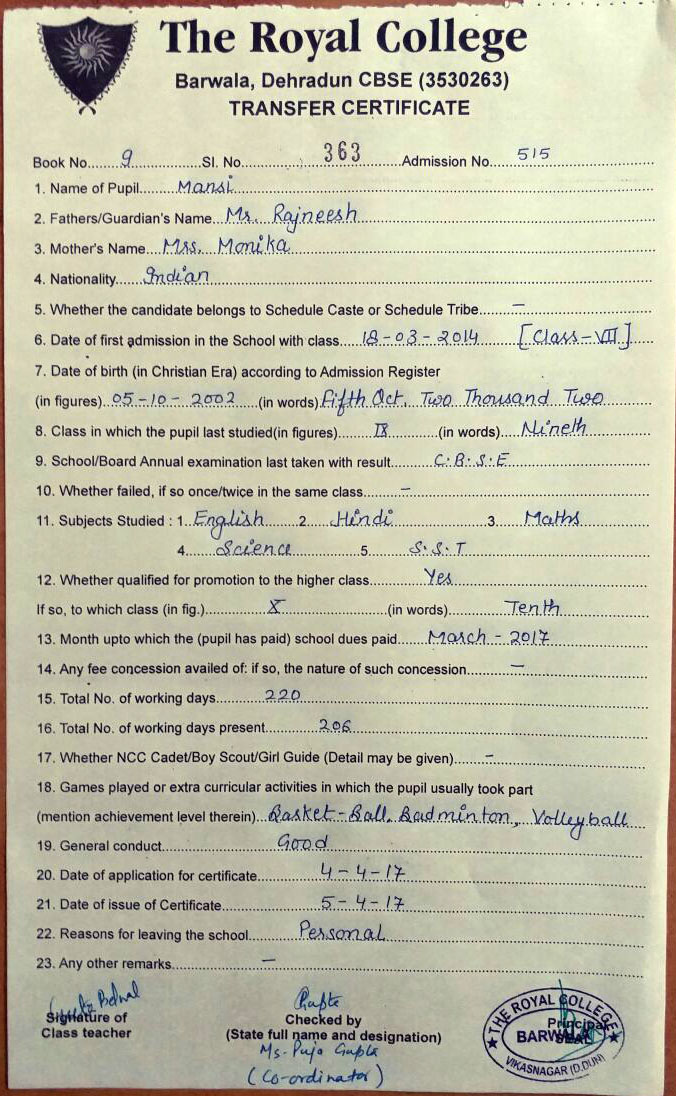 The Royal College
Barwala, Dehradun CBSE (3530263)
TRANSFER CERTIFICATE
Book No. 9 Sl. No. 363 Admission No. 515
1. Name of Pupil Mansi
2. Fathers/Guardian's Name Mr. Rajneesh
3. Mother's Name Mrs. Monika
4. Nationality Indian
5. Whether the candidate belongs to Schedule Caste or Schedule Tribe –
6. Date of first admission in the School with class 18-03-2014 [Class-VII]
7. Date of birth (in Christian Era) according to Admission Register
(in figures) 05-10-2002 (in words) Fifth Oct. Two Thousand Two
8. Class in which the pupil last studied(in figures) IX (in words) Nineth
9. School/Board Annual examination last taken with result C.B.S.E
10. Whether failed, if so once/twice in the same class –
11. Subjects Studied : 1. English 2. Hindi 3. Maths
4. Science 5. S.S.T
12. Whether qualified for promotion to the higher class Yes
If so, to which class (in fig.) X (in words) Tenth
13. Month upto which the (pupil has paid) school dues paid March - 2017
14. Any fee concession availed of: if so, the nature of such concession –
15. Total No. of working days 220
16. Total No. of working days present 206
17. Whether NCC Cadet/Boy Scout/Girl Guide (Detail may be given) –
18. Games played or extra curricular activities in which the pupil usually took part
(mention achievement level therein) Basket-Ball, Badminton, Volleyball
19. General conduct Good
20. Date of application for certificate 4-4-17
21. Date of issue of Certificate 5-4-17
22. Reasons for leaving the school Personal
23. Any other remarks –
Gupta
Signature of Checked by Principal
Class teacher (State full name and designation) SEAL
Ms. Puja Gupta
(Co-ordinator)
THE ROYAL COLLEGE
BARWALA
VIKASNAGAR (D.DUN)